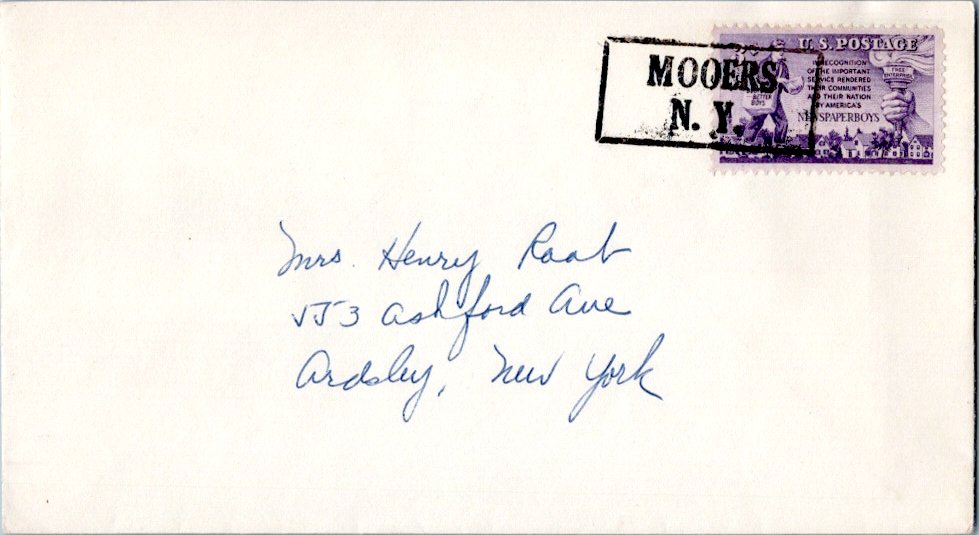 MOOERS
N. Y.
U. S. POSTAGE
IN RECOGNITION
OF THE IMPORTANT
SERVICE RENDERED
THEIR COMMUNITIES
AND THEIR NATION
BY AMERICA'S
NEWSPAPERBOYS
FREE
ENTERPRISE
BETTER
BOYS
Mrs. Henry Raab
553 Ashford Ave
Ardsley, New York